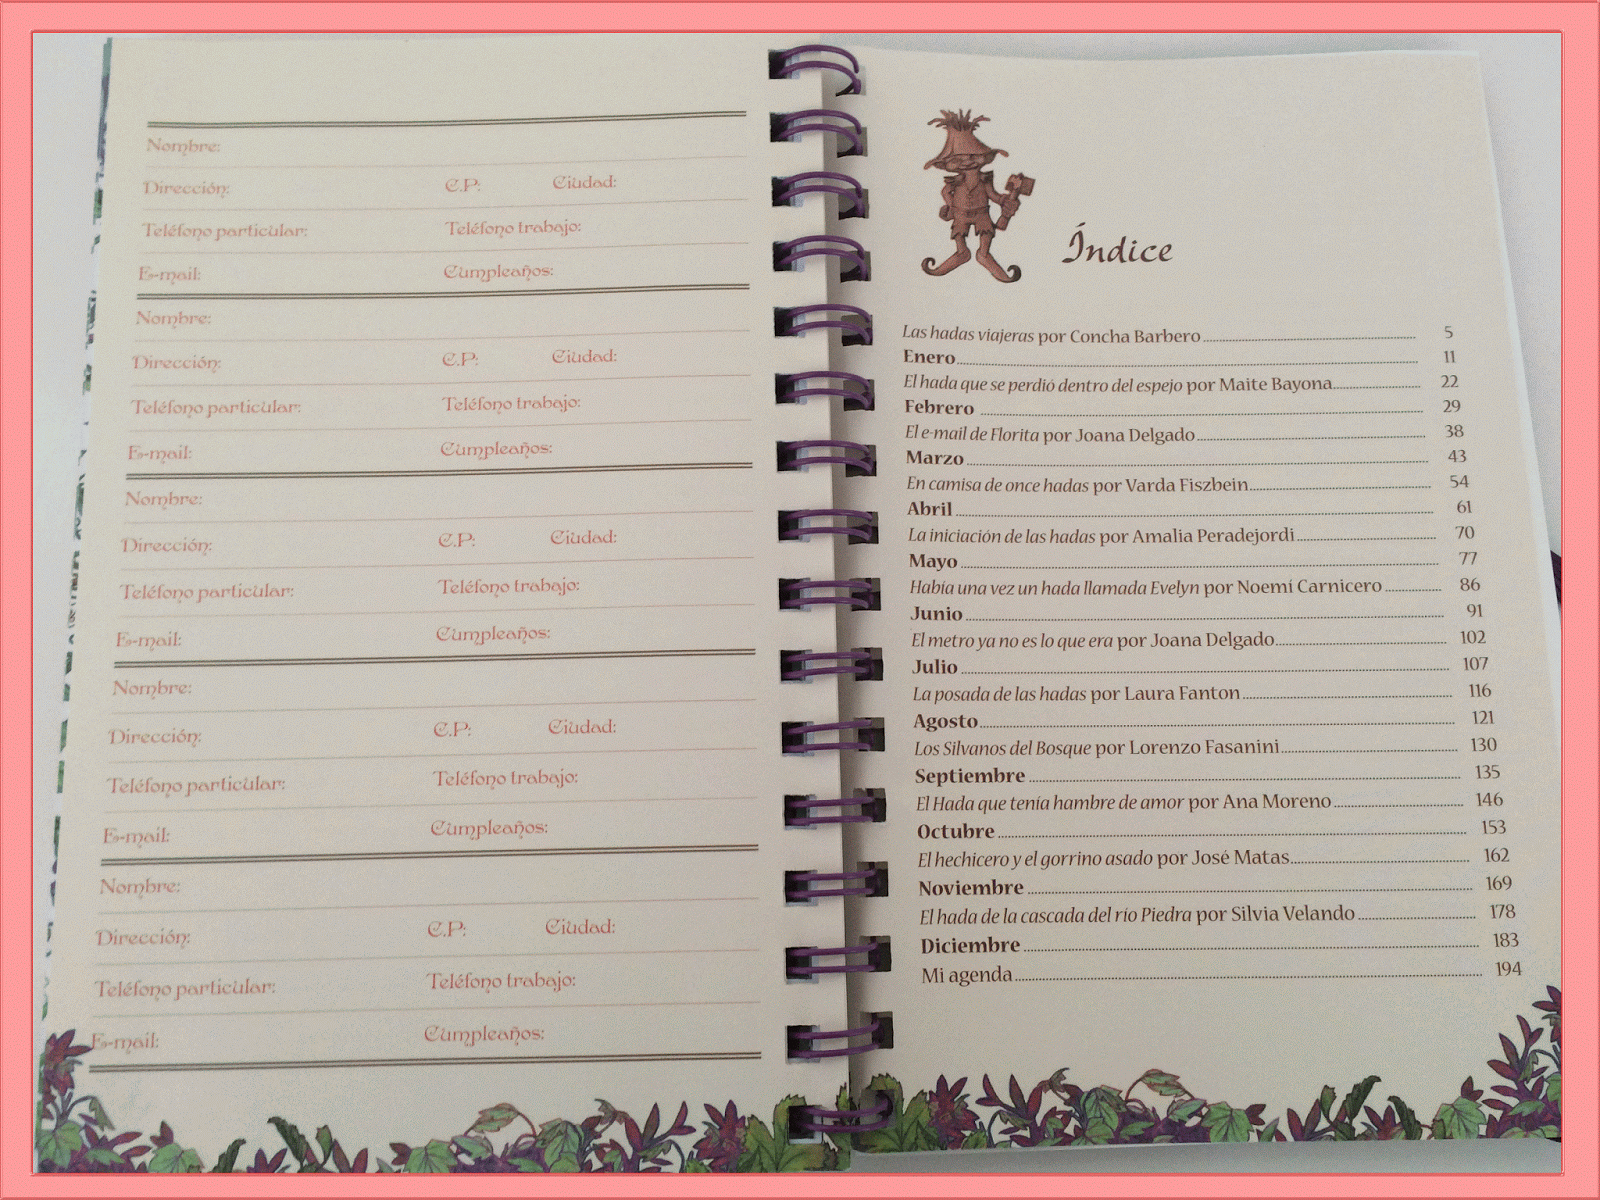 Nombre:
Dirección: C.P: Ciudad:
Teléfono particular: Teléfono trabajo:
E-mail: Cumpleaños:
Nombre:
Dirección: C.P: Ciudad:
Teléfono particular: Teléfono trabajo:
E-mail: Cumpleaños:
Nombre:
Dirección: C.P: Ciudad:
Teléfono particular: Teléfono trabajo:
E-mail: Cumpleaños:
Nombre:
Dirección: C.P: Ciudad:
Teléfono particular: Teléfono trabajo:
E-mail: Cumpleaños:
Nombre:
Dirección: C.P: Ciudad:
Teléfono particular: Teléfono trabajo:
E-mail: Cumpleaños:
Índice
Las hadas viajeras por Concha Barbero 5
Enero 11
El hada que se perdió dentro del espejo por Maite Bayona 22
Febrero 29
El e-mail de Florita por Joana Delgado 38
Marzo 43
En camisa de once hadas por Varda Fiszbein 54
Abril 61
La iniciación de las hadas por Amalia Peradejordi 70
Mayo 77
Había una vez un hada llamada Evelyn por Noemí Carnicero 86
Junio 91
El metro ya no es lo que era por Joana Delgado 102
Julio 107
La posada de las hadas por Laura Fanton 116
Agosto 121
Los Silvanos del Bosque por Lorenzo Fasanini 130
Septiembre 135
El Hada que tenía hambre de amor por Ana Moreno 146
Octubre 153
El hechicero y el gorrino asado por José Matas 162
Noviembre 169
El hada de la cascada del río Piedra por Silvia Velando 178
Diciembre 183
Mi agenda 194